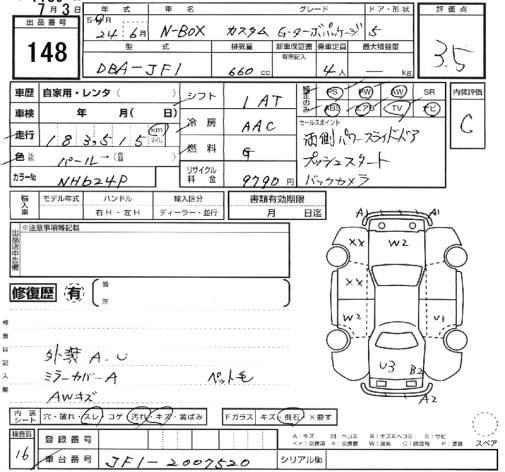 7月3日
出品番号
148
年式 車名 グレード ドア・形状 評価点
24年 6月 N-BOX カスタム G・ターボパッケージ 5 3.5
型式 排気量 新車保証書 乗車定員 最大積載量
有無記入
DBA-JF1 660cc 4人 — kg
車歴 自家用・レンタ ( )
シフト 1AT
PS PW AW SR
内装評価
車検 年 月 ( 日 )
ABS エアB TV ナビ
C
走行 183,515 km マイル
冷房 AAC
セールスポイント
両側パワースライドドア
色 パール→
燃料 G
プッシュスタート
カラーNo NH624P
リサイクル料金 9790円
バックカメラ
輸入車 モデル年式 ハンドル 輸入区分 書類有効期限
右H・左H ディーラー・並行 月 日迄
※注意事項等記載
修復歴 有
A1 A1
XX W2
XX
W2 U1
U3 B2
A2
外装 A.U
ミラーカバーA ペット毛
AWキズ
内装シート 穴・破れ・スレ・コゲ 汚れ・キズ・黄ばみ Fガラス キズ・飛石 ×要す
スペア
検査員 16
登録番号
車台番号 JF1-2007520 シリアルNo